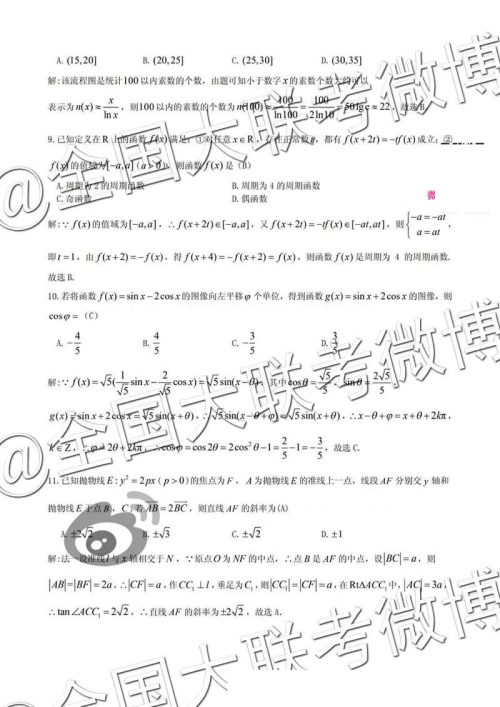 A. (15,20]    B. (20,25]    C. (25,30]    D. (30,35]
解:该流程图是统计100以内素数的个数,由题可知小于数字x的素数个数大约可以
表示为n(x)≈x/ln x,则100以内的素数的个数为n(100)≈100/ln100=100/2ln10=50lg e≈22,故选B.
9.已知定义在R上的函数f(x)满足:①对任意x∈R,存在正常数t,都有f(x+2t)=-tf(x)成立;②
f(x)的值域为[-a,a](a>0),则函数f(x)是(B)
A.周期为2的周期函数    B.周期为4的周期函数
C.奇函数    D.偶函数
解:∵f(x)的值域为[-a,a],∴f(x+2t)∈[-a,a],又f(x+2t)=-tf(x)∈[-at,at],则{-a=-at, a=at,
即t=1,由f(x+2)=-f(x),得f(x+4)=-f(x+2)=f(x),则函数f(x)是周期为4的周期函数.
故选B.
10.若将函数f(x)=sin x-2cos x的图像向左平移φ个单位,得到函数g(x)=sin x+2cos x的图像,则
cosφ=(C)
A.-4/5    B.4/5    C.-3/5    D.3/5
解:∵f(x)=√5(1/√5 sin x-2/√5 cos x)=√5sin(x-θ),其中cosθ=√5/5,sinθ=2√5/5
g(x)=sin x+2cos x=√5sin(x+θ),∴√5sin(x-θ+φ)=√5sin(x+θ),∴x-θ+φ=x+θ+2kπ,
k∈Z,∴φ=2θ+2kπ,∴cosφ=cos2θ=2cos²θ-1=2/5-1=-3/5,故选C.
11.已知抛物线E:y²=2px(p>0)的焦点为F,A为抛物线E的准线上一点,线段AF分别交y轴和
抛物线E于点B,C,若AB=2BC,则直线AF的斜率为(A)
A.±2√2    B.±√3    C.±√2    D.±1
解:法一设准线l与x轴相交于N,∵原点O为NF的中点,∴点B是AF的中点,设|BC|=a,则
|AB|=|BF|=2a,∴|CF|=a,作CC₁⊥l,垂足为C₁,则|CC₁|=|CF|=a,在Rt△ACC₁中,|AC|=3a,
∴tan∠ACC₁=2√2,∴直线AF的斜率为±2√2,故选A.
@全国大联考微博
@全国大联考微博